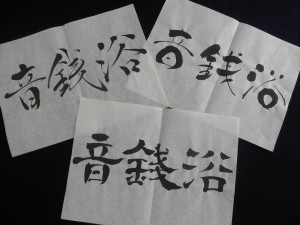 音銭浴
音銭浴
音銭浴